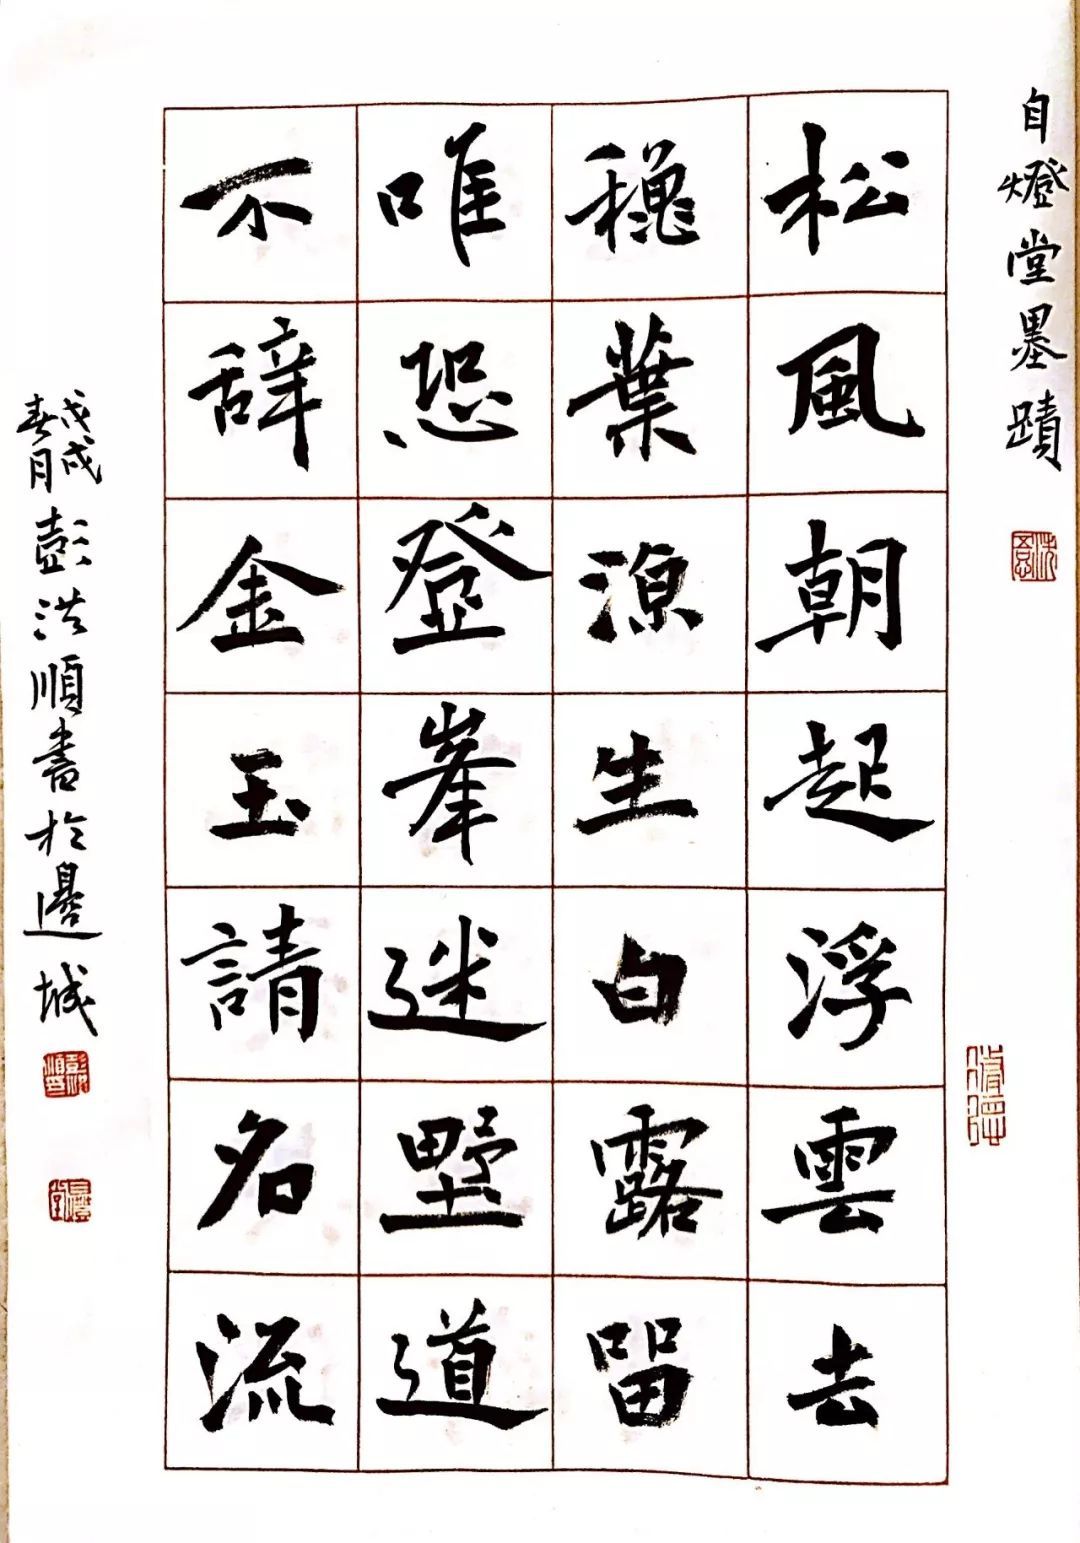 自燈堂墨蹟
松風朝起浮雲去
穐葉源生白露留
唯恐登峯迷野道
不辭金玉請名流
戊戌春月彭洪順書於邊城